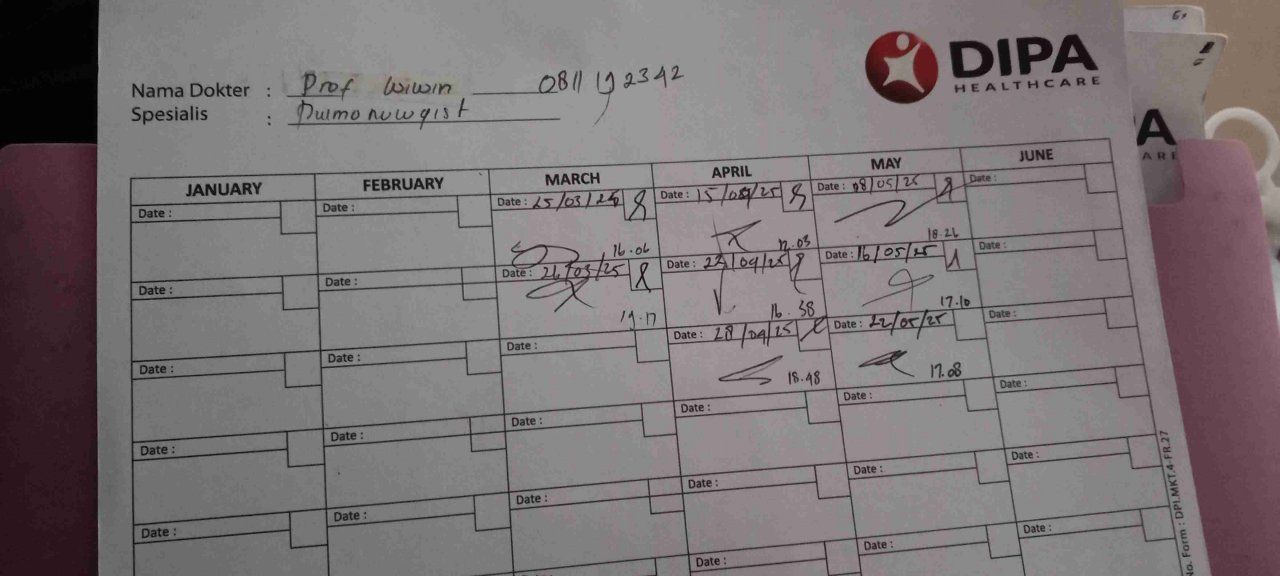 DIPA
HEALTHCARE
Nama Dokter : Prof Wiwin 0811 192342
Spesialis : Pulmonuwgist
JANUARY FEBRUARY MARCH APRIL MAY JUNE
Date : Date : Date : 25/03/25 Date : 15/04/25 Date : 08/05/25 Date :
16.06 17.03 18.26
Date : Date : Date : 26/03/25 Date : 23/04/25 Date : 16/05/25 Date :
19.17 16.38 17.10
Date : Date : Date : Date : 28/04/25 Date : 22/05/25 Date :
18.48 17.08
Date : Date : Date : Date : Date : Date :
Date : Date : Date : Date : Date : Date :
Date : Date : Date :
No. Form : DPI.MKT.4-FR.27
A
ARE